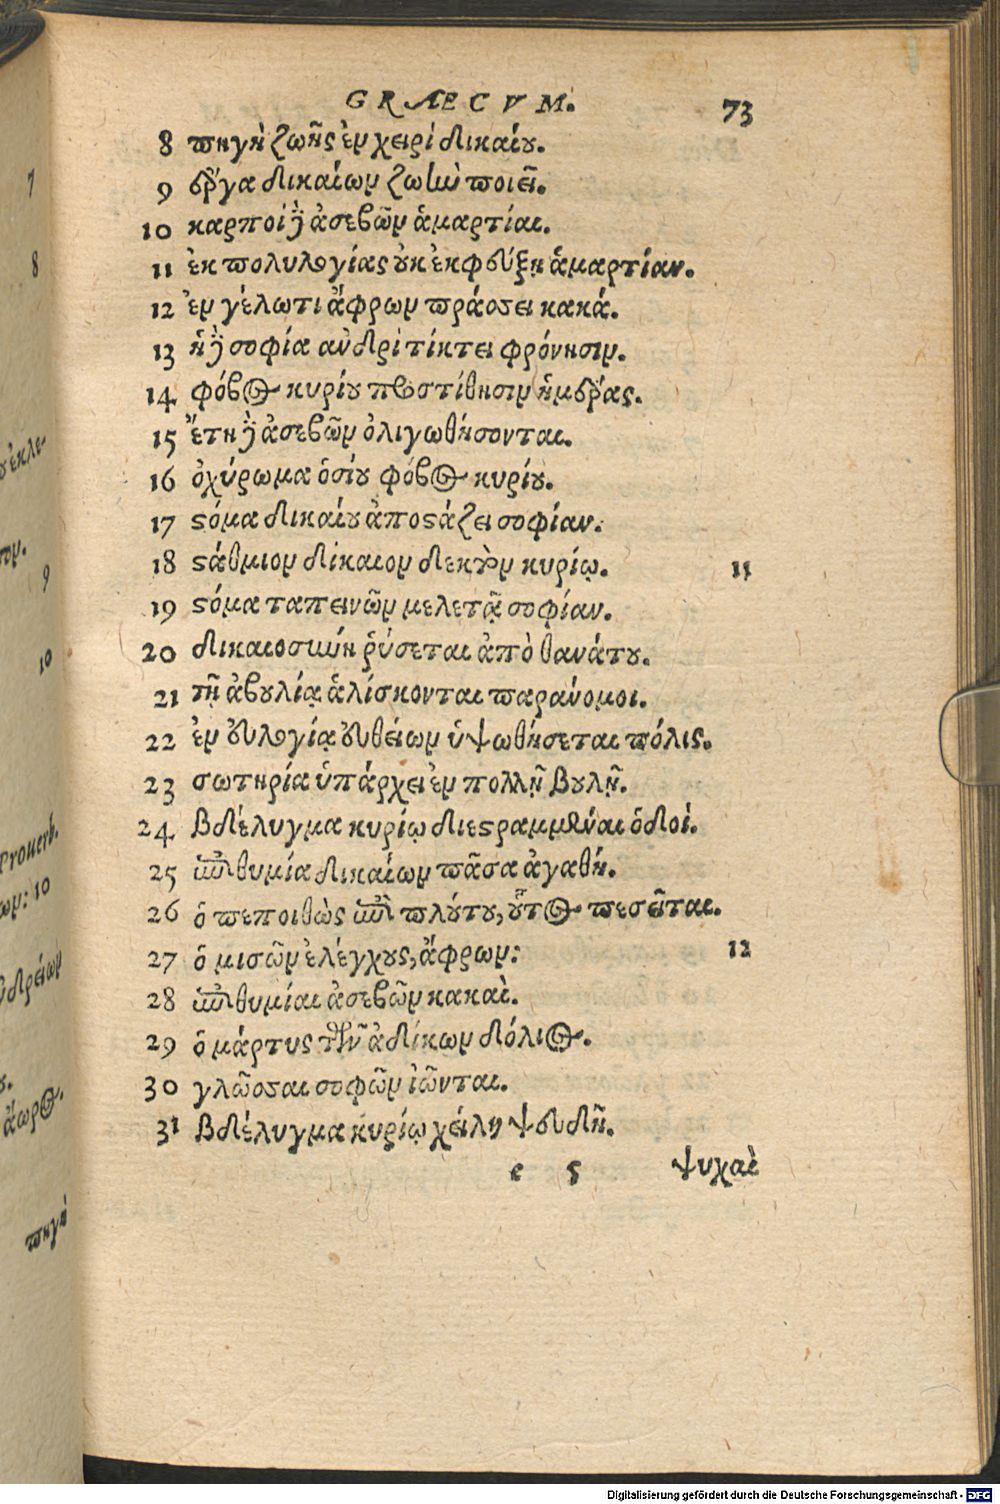 GRAECVM. 73
8 πηγὴ ζωῆς ἐν χειρὶ δικαίου.
9 ἔργα δικαίων ζωὴν ποιεῖ.
10 καρποὶ δὲ ἀσεβῶν ἁμαρτίαι.
11 ἐκ πολυλογίας οὐκ ἐκφεύξῃ ἁμαρτίαν.
12 ἐν γέλωτι ἄφρων πράσσει κακά.
13 ἡ δὲ σοφία ἀνδρὶ τίκτει φρόνησιν.
14 φόβος κυρίου προστίθησιν ἡμέρας.
15 ἔτη δὲ ἀσεβῶν ὀλιγωθήσονται.
16 ὀχύρωμα ὁσίου φόβος κυρίου.
17 στόμα δικαίου ἀποστάζει σοφίαν.
18 στάθμιον δίκαιον δεκτὸν κυρίῳ. 11
19 στόμα ταπεινῶν μελετᾷ σοφίαν.
20 δικαιοσύνη ῥύσεται ἀπὸ θανάτου.
21 τῇ ἀβουλίᾳ ἁλίσκονται παράνομοι.
22 ἐν εὐλογίᾳ εὐθείων ὑψωθήσεται πόλις.
23 σωτηρία ὑπάρχει ἐν πολλῇ βουλῇ.
24 βδέλυγμα κυρίῳ διεστραμμέναι ὁδοί.
25 ἐπιθυμία δικαίων πᾶσα ἀγαθή.
26 ὁ πεποιθὼς ἐπὶ πλούτου, οὗτος πεσεῖται.
27 ὁ μισῶν ἐλέγχους, ἄφρων: 12
28 ἐπιθυμίαι ἀσεβῶν κακαί.
29 ὁ μάρτυς τῶν ἀδίκων δόλιος.
30 γλῶσσαι σοφῶν ἰῶνται.
31 βδέλυγμα κυρίῳ χείλη ψευδῆ.
e 5 ψυχαὶ
7
8
9
10
Prouerb.
10
πηγὴ
Digitalisierung gefördert durch die Deutsche Forschungsgemeinschaft - DFG